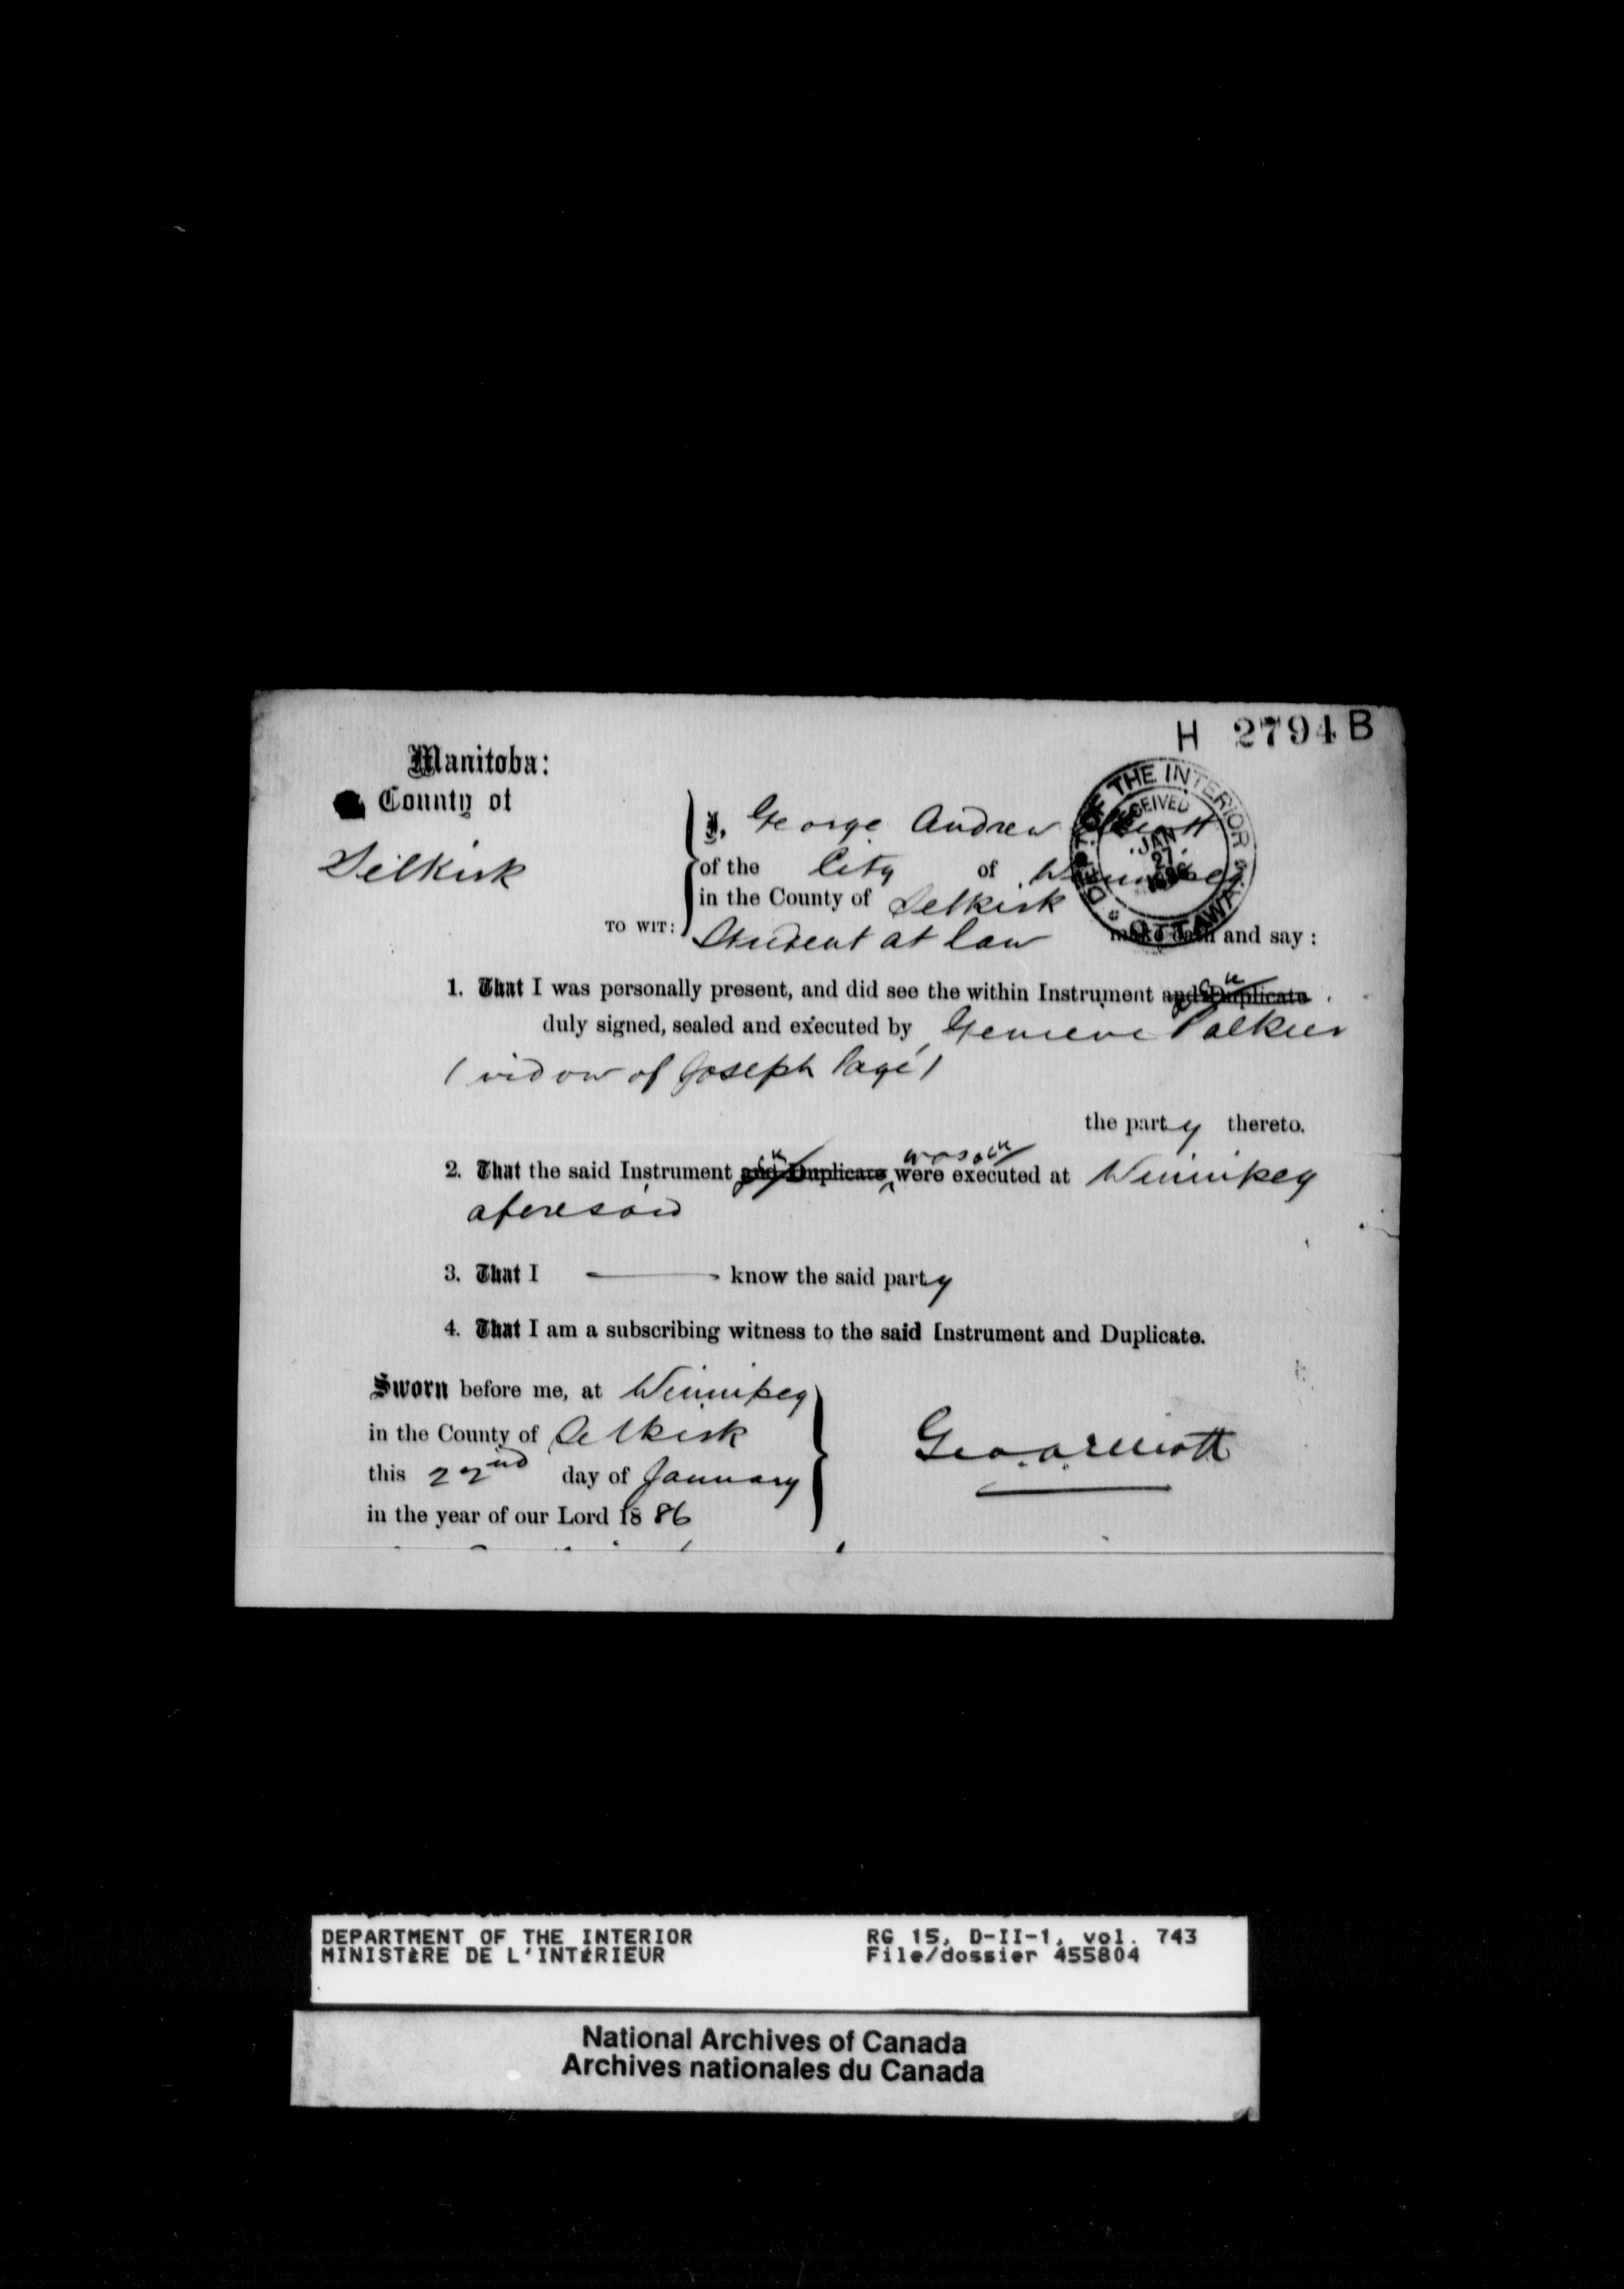 H 2794 B
Manitoba:
County of
Selkirk
TO WIT:
I, George Andrew Elliott
of the City of Winnipeg
in the County of Selkirk
Student at law make oath and say :
DEPT. OF THE INTERIOR
RECEIVED
JAN
27
1886
OTTAWA
1. That I was personally present, and did see the within Instrument and Duplicate
duly signed, sealed and executed by Genevieve
( widow of Joseph Pagé )
the party thereto.
was
2. That the said Instrument and Duplicate were executed at Winnipeg
aforesaid
3. That I ——— know the said party
4. That I am a subscribing witness to the said Instrument and Duplicate.
Sworn before me, at Winnipeg
in the County of Selkirk
this 22nd day of January
in the year of our Lord 1886
Geo. A. Elliott
DEPARTMENT OF THE INTERIOR RG 15, D-II-1, vol. 743
MINISTÈRE DE L'INTÉRIEUR File/dossier 455804
National Archives of Canada
Archives nationales du Canada